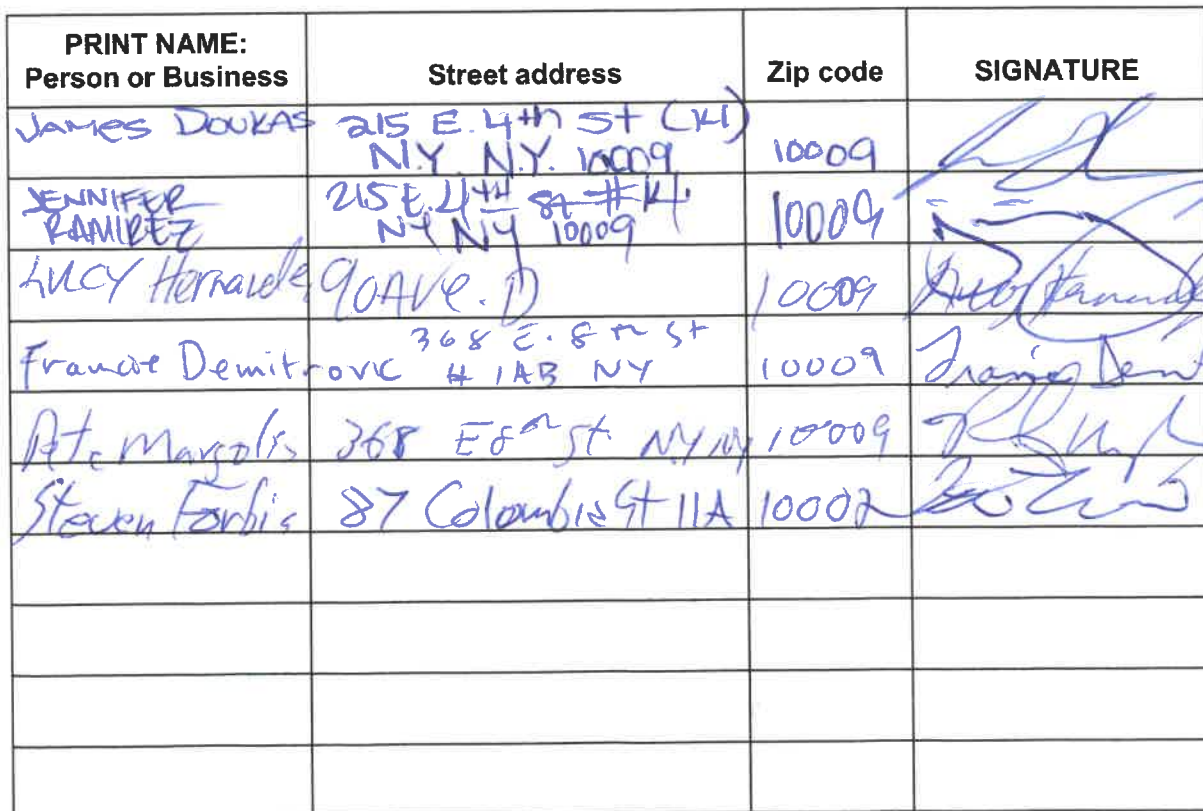 PRINT NAME:
Person or Business
Street address
Zip code
SIGNATURE
JAMES DOUKAS
215 E. 4th St (K1)
N.Y. N.Y. 10009
10009
JENNIFER
RAMIREZ
215 E. 4th St #
NY NY 10009
10009
LUCY Hernande
90 AVe. D
10009
Hernande
Demitrovic
368 E. 8th St
# 1AB NY
10009
Demit
Pete Margolis
368 E 8th St NY NY
10009
Steven Forbis
87 Columbia St 11A
10002